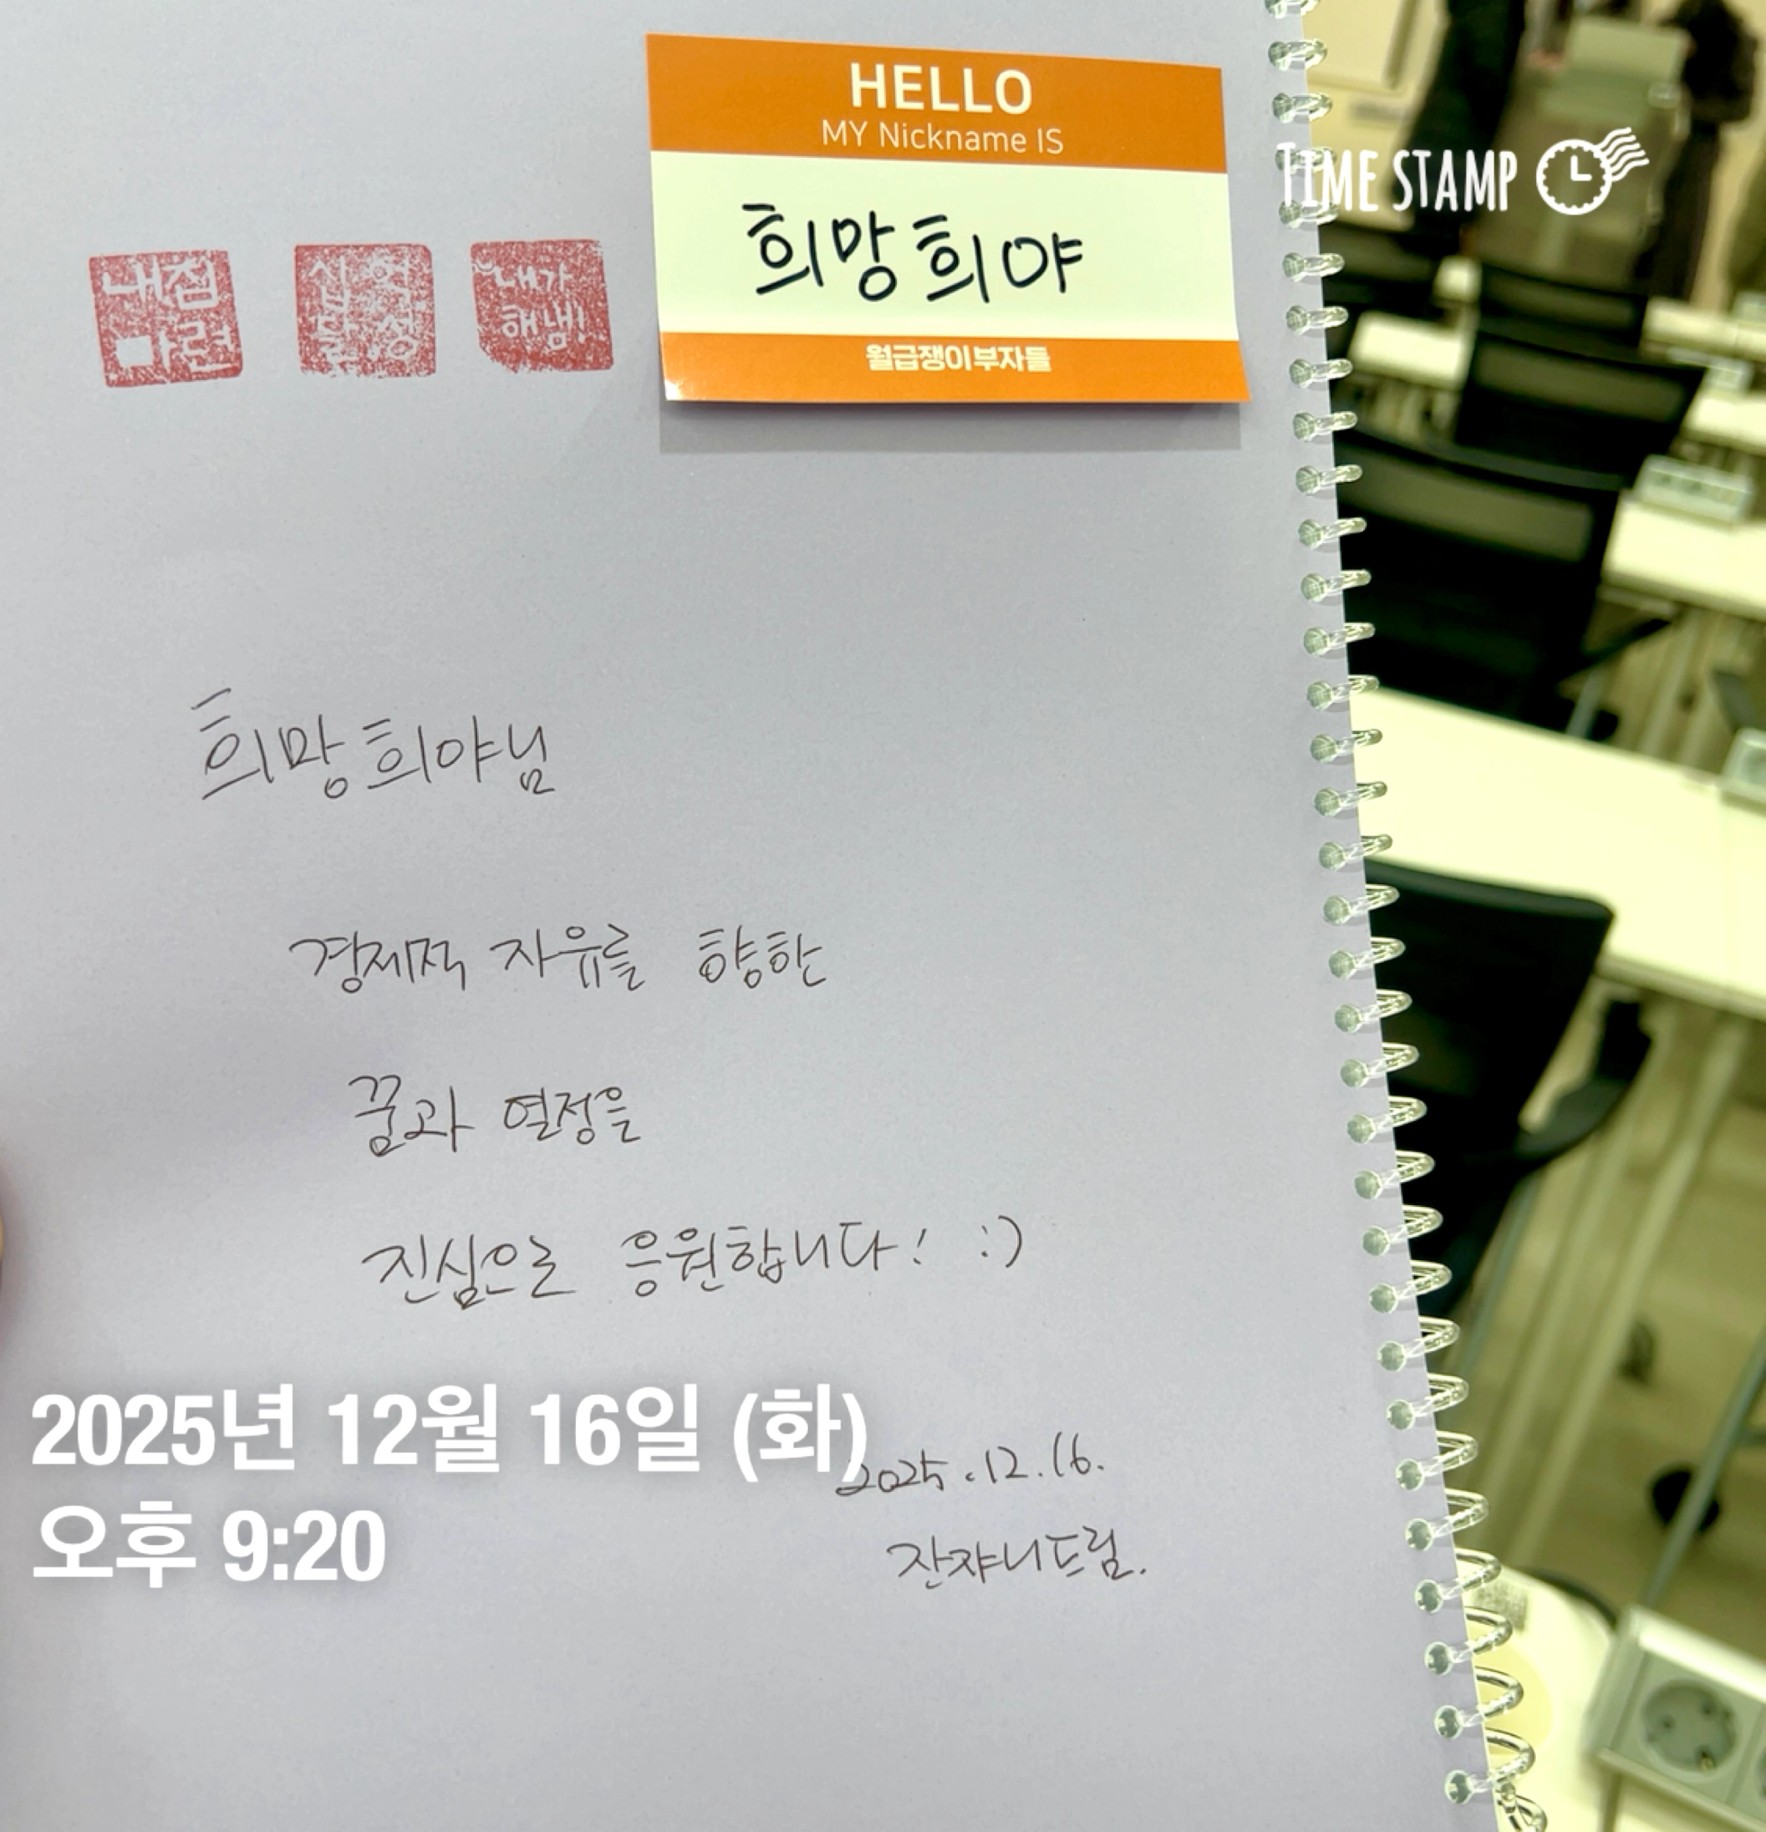 HELLO
MY Nickname IS
희망희야
월급쟁이부자들
TIME STAMP
내집
마련
십억
달성
내가
해냄!
희망희야님
경제적 자유를 향한
꿈과 열정을
진심으로 응원합니다! :)
2025년 12월 16일 (화)
오후 9:20
2025.12.16.
잔쟈니드림.